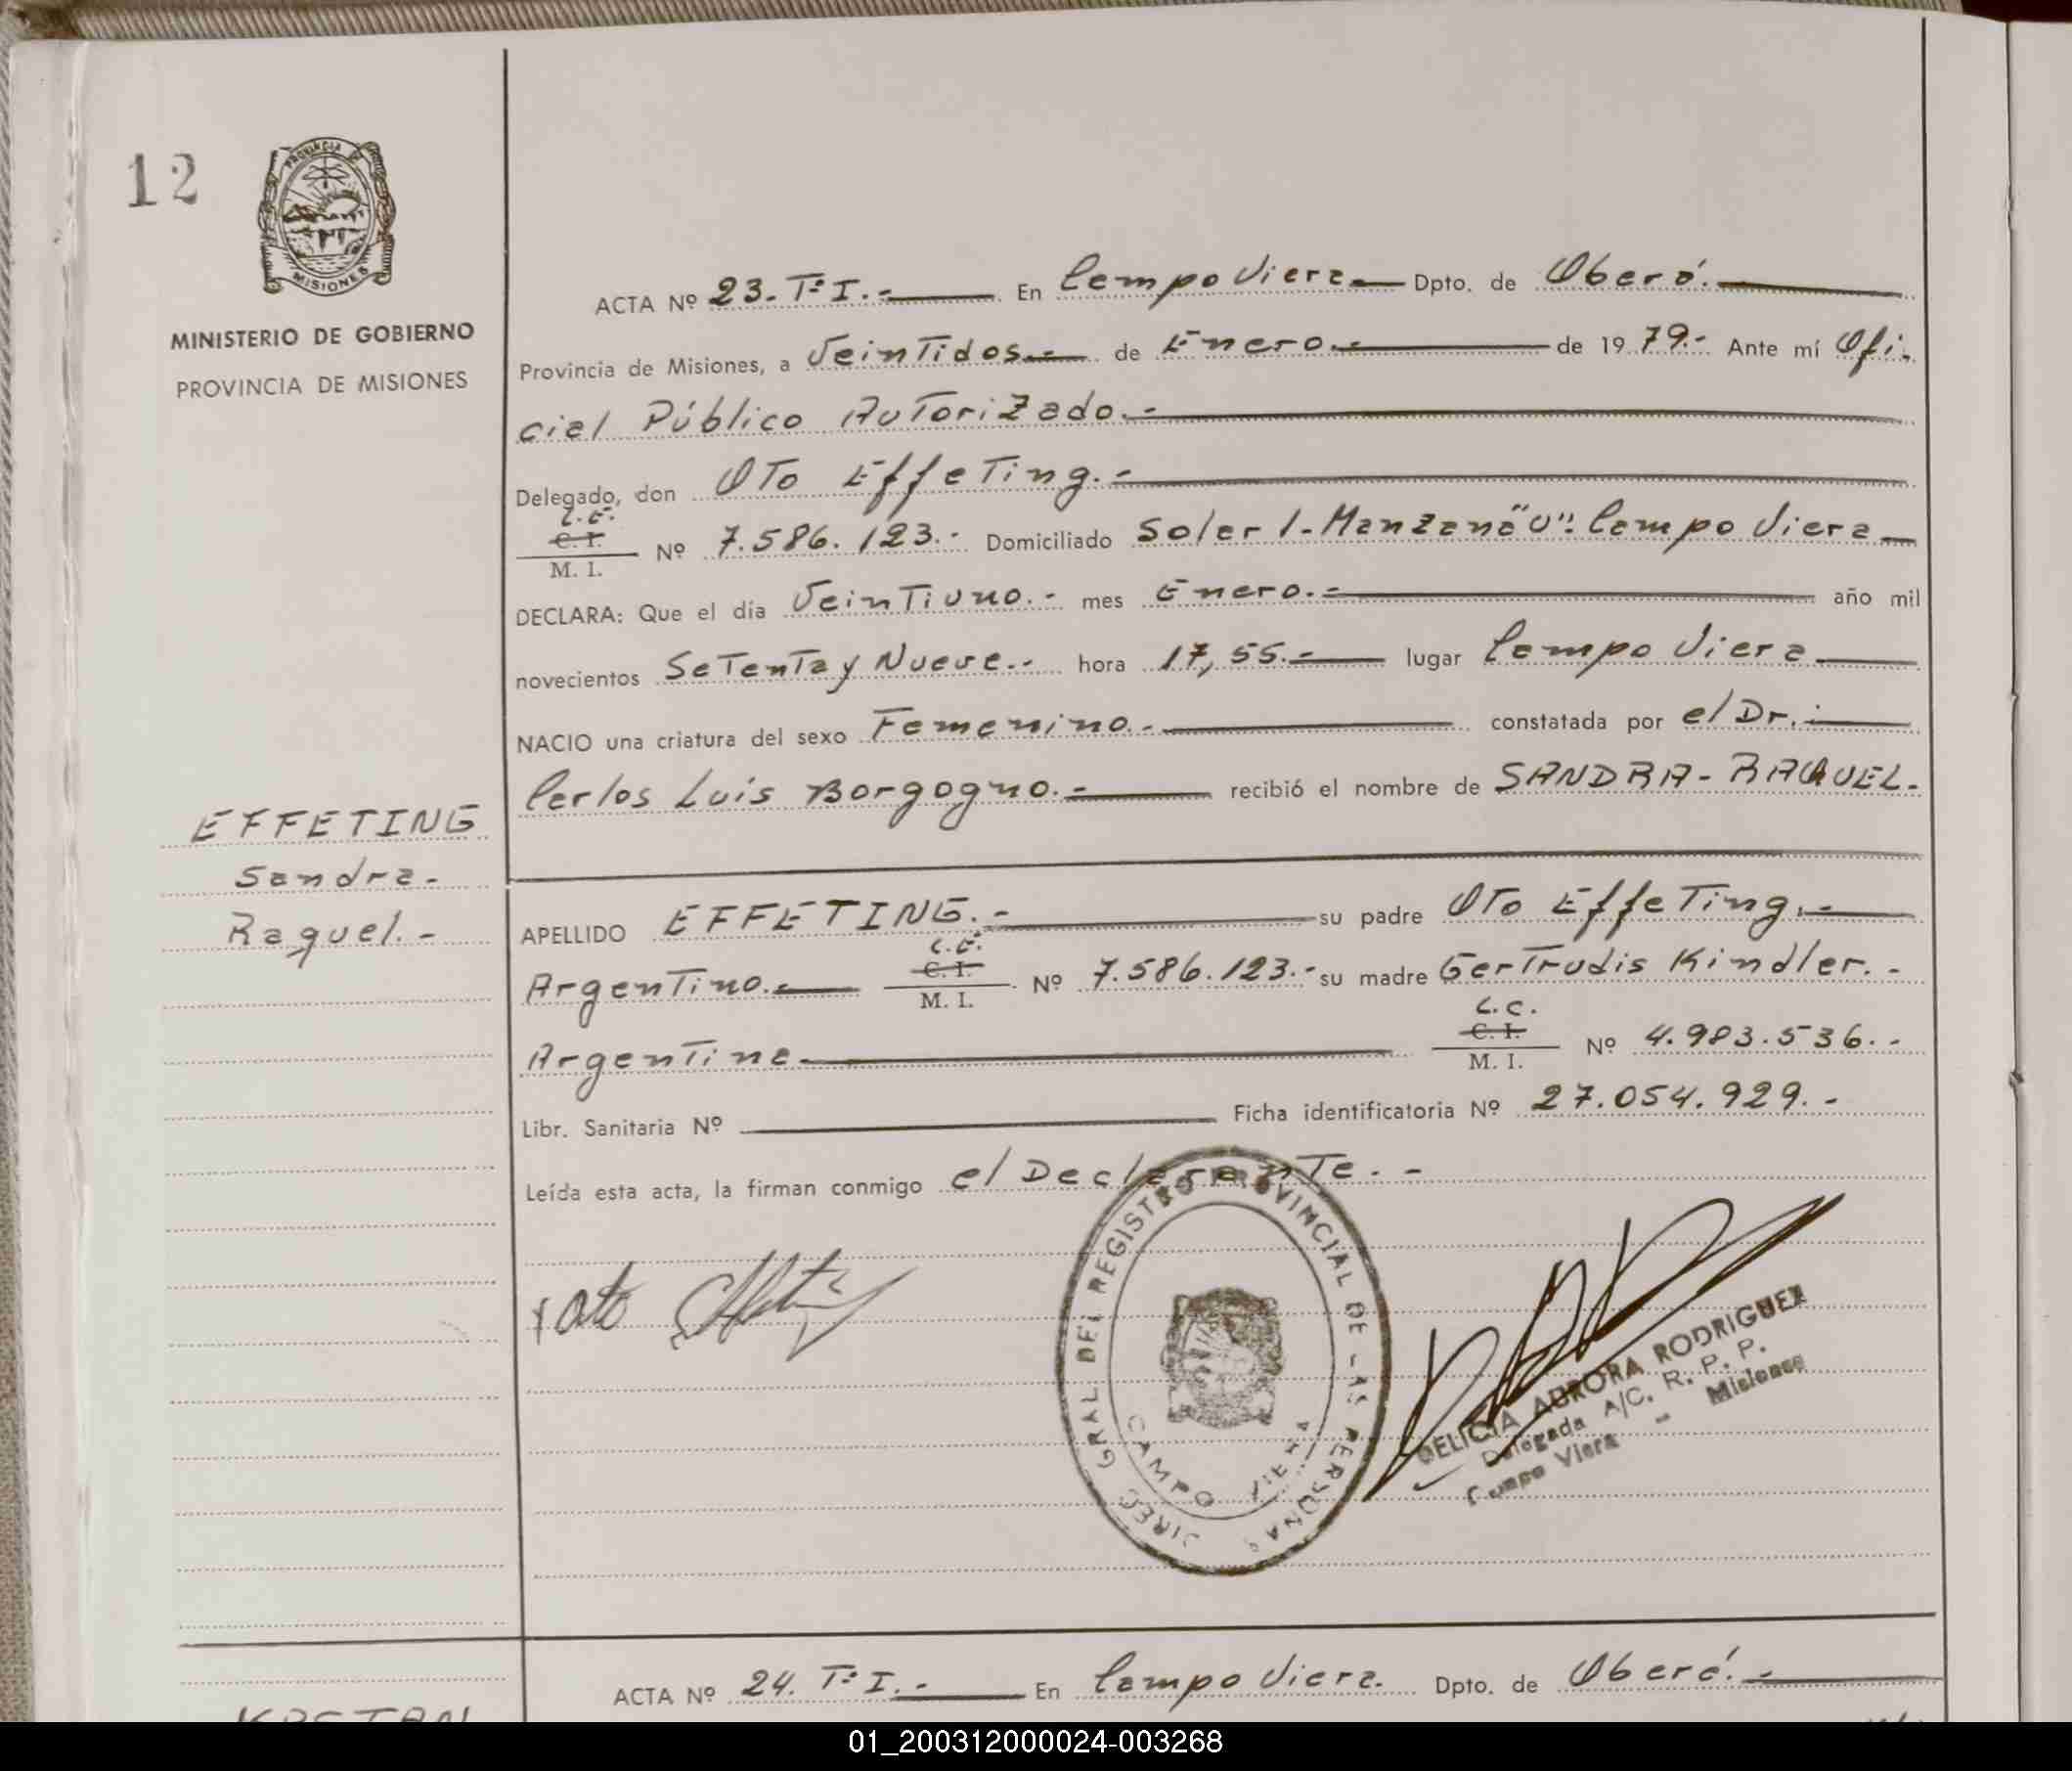 12
PROVINCIA DE
MISIONES
MINISTERIO DE GOBIERNO
PROVINCIA DE MISIONES
ACTA Nº 23. Tº I.- En Campo Viera Dpto. de Oberá.
Provincia de Misiones, a Veintidos.- de Enero.- de 1979.- Ante mí Ofi-
cial Público Autorizado.-
Delegado, don Oto Effeting.-
L.E.
C. I.
M. I.
Nº 7.586.123.- Domiciliado Soler 1-Manzana "U". Campo Viera
DECLARA: Que el día Veintiuno.- mes Enero.- año mil
novecientos Setenta y Nueve.- hora 17,55.- lugar Campo Viera
NACIO una criatura del sexo Femenino.- constatada por el Dr.:
Carlos Luis Borgogno.- recibió el nombre de SANDRA-RAQUEL.
EFFETING
Sandra-
Raquel.-
APELLIDO EFFETING.- su padre Oto Effeting.-
L.E.
C. I.
M. I.
Argentino.- Nº 7.586.123.- su madre Gertrudis Kindler.-
L.C.
C. I.
M. I.
Argentina Nº 4.983.536.-
Libr. Sanitaria Nº Ficha identificatoria Nº 27.054.929.-
Leída esta acta, la firman conmigo el Declarante.-
x Oto
DIREC. GRAL DEL REGISTRO PROVINCIAL DE LAS PERSONAS
CAMPO VIERA
DELICIA AURORA RODRIGUEZ
Delegada A/C. R. P. P.
Campo Viera - Misiones
ACTA Nº 24. Tº I.- En Campo Viera. Dpto. de Oberá.-
01_200312000024-003268